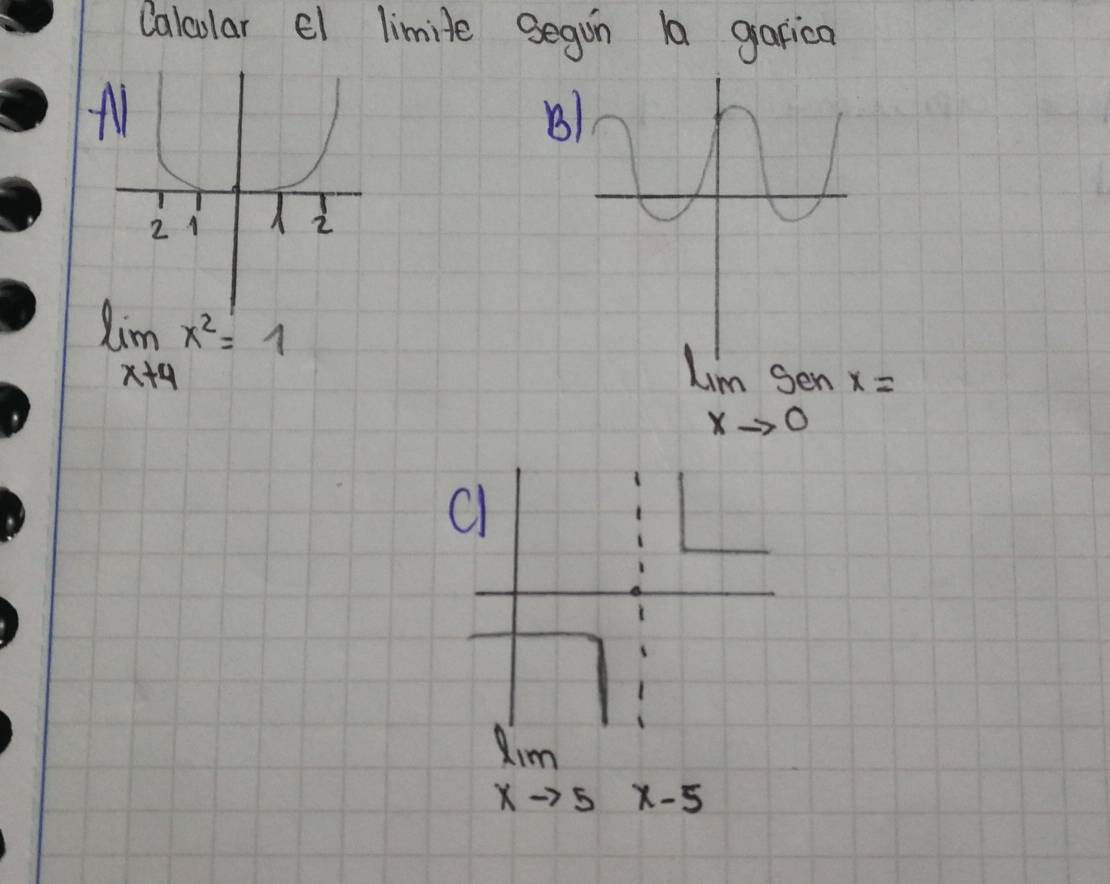 Calcular el limite según la grafica
A)
B)
2 1 1 2
lim x² = 1
x+4
lim sen x =
x → 0
C)
lim
x → 5 x-5